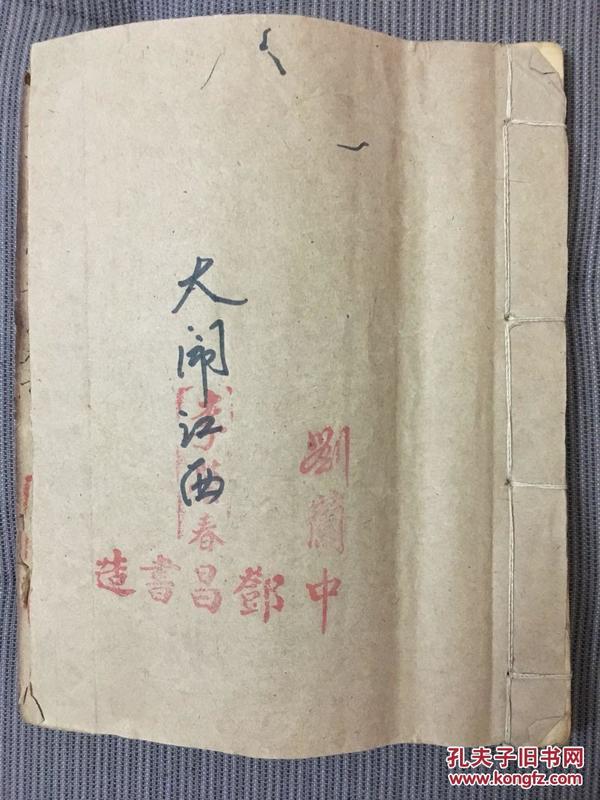 大闹江西
劉蘭中
李
春
造書昌鄧
孔夫子旧书网
www.kongfz.com